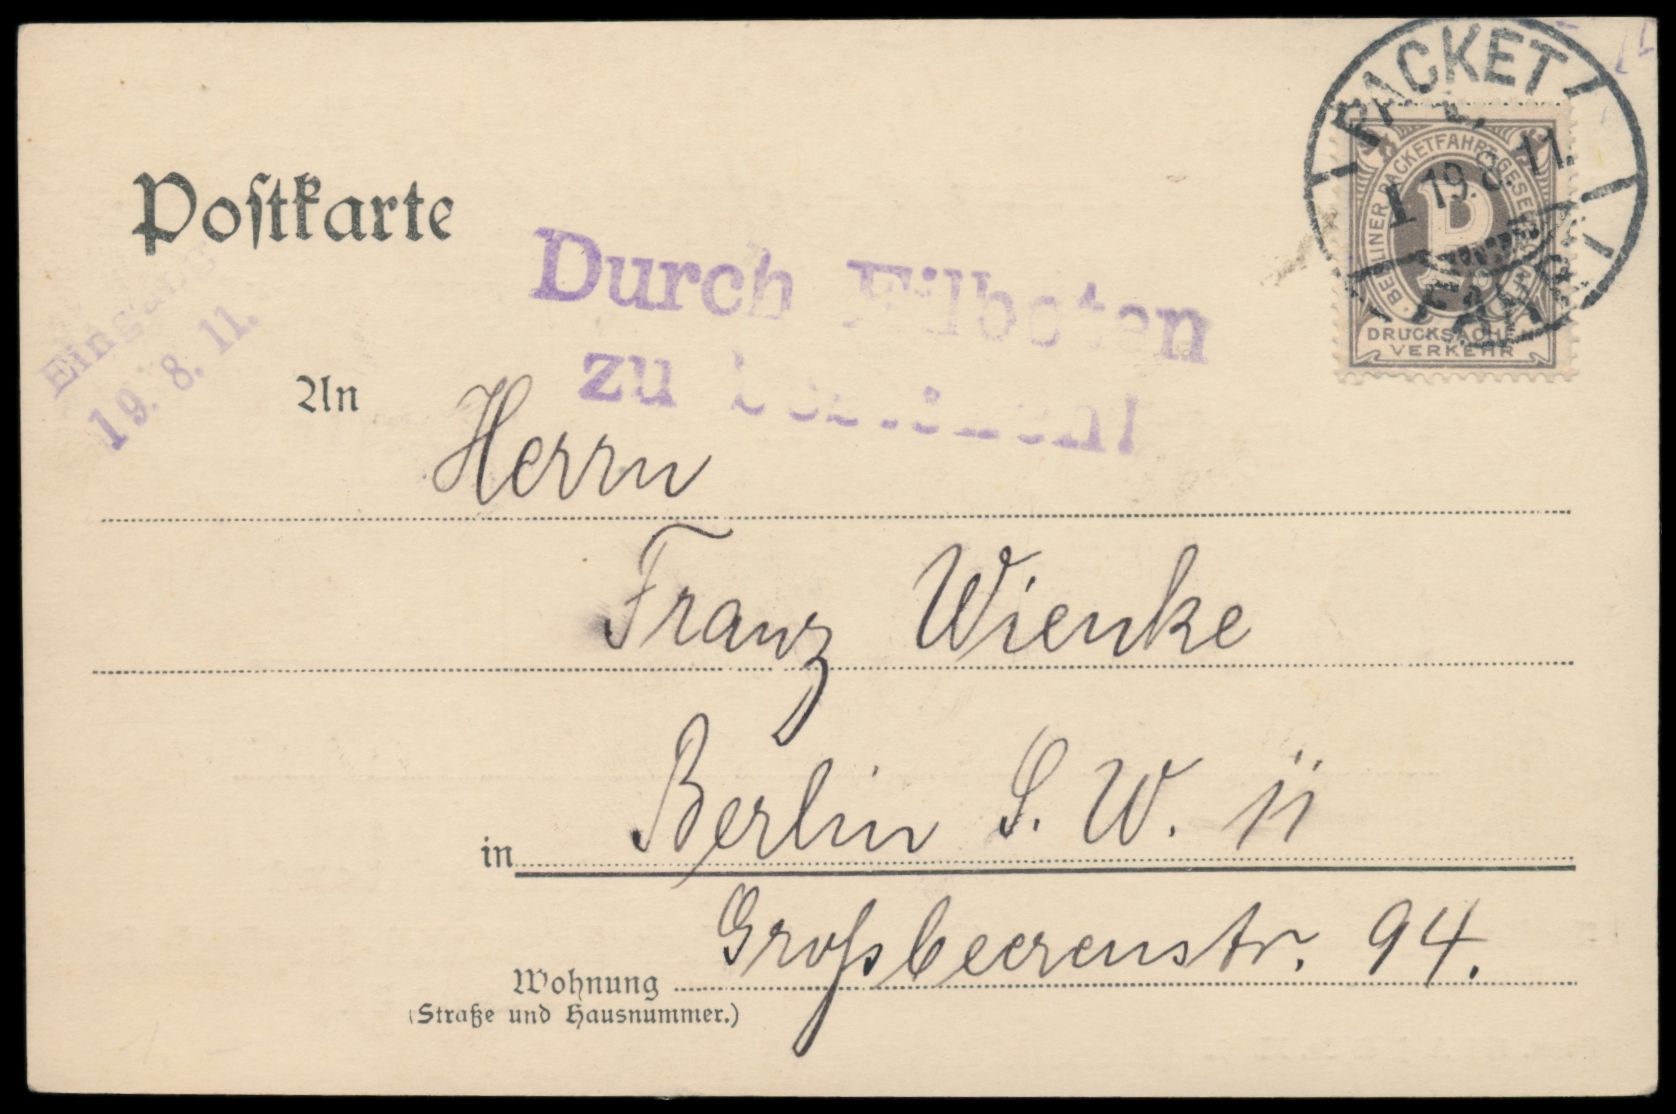 Postkarte
PACKET
L.
1 19.8.11.
FAHRT
BERLINER PACKETFAHRT-GESELLSCHAFT
P
DRUCKSACHEN
VERKEHR
Durch Eilboten
zu bestellen!
Eingang
19. 8. 11.
An
Herrn
Franz Wienke
in Berlin S. W. 11
Großbeerenstr. 94.
Wohnung
(Straße und Hausnummer.)